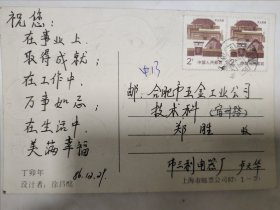 祝您：
在事业上
取得成就；
在工作中
万事如意；
在生活中
美满幸福
86.12.29.
丁卯年
设计者：徐昌酩
2分
2分
中国人民邮政
中国人民邮政
邮：合肥市五金工业公司
技术科（宿州路）
郑胜 收
市三利电器厂 卢文华